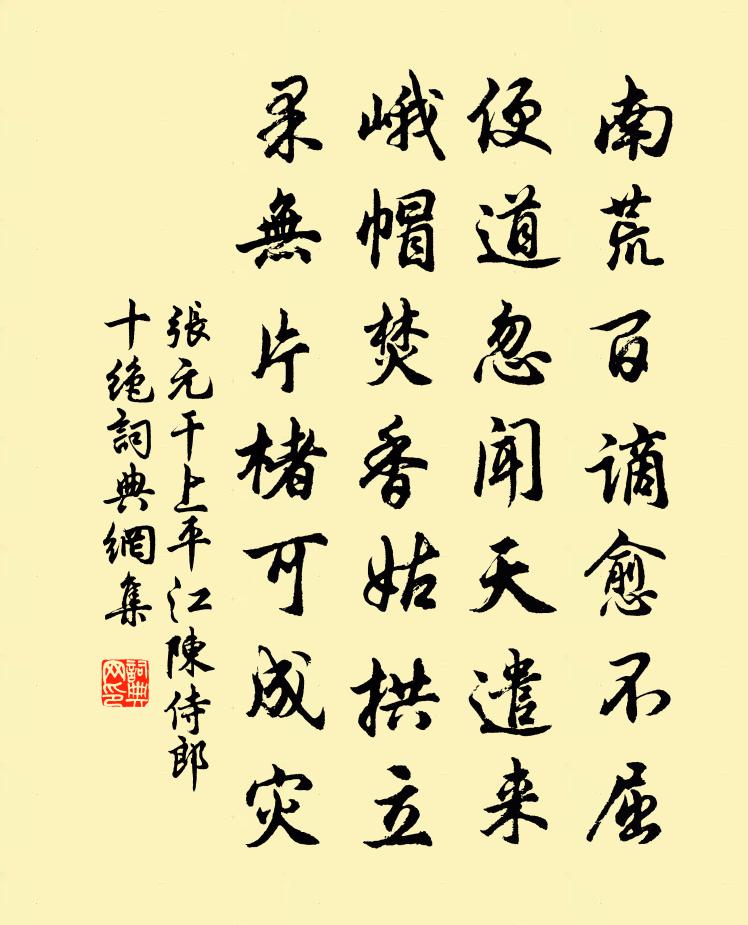 南荒百謫愈不屈
便道忽聞天遣来
峨帽焚香姑拱立
果無片楮可成灾
張元干上平江陳侍郎
十绝詞典網集
詞典网印